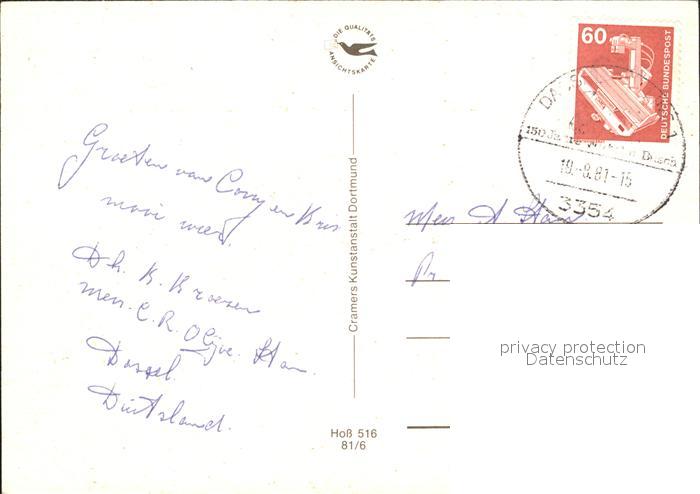 DIE QUALITÄTS
ANSICHTSKARTE
60
DEUTSCHE BUNDESPOST
150 Jahre
19.-8.81-15
3354
Groeten van Corry en Kris
mooi weer.
Dh. K. Kroezen
mevr. C. R. Olijve. Stam.
Dassel.
Duitsland.
Cramers Kunstanstalt Dortmund
Hoß 516
81/6
Mevr A Stam
privacy protection
Datenschutz